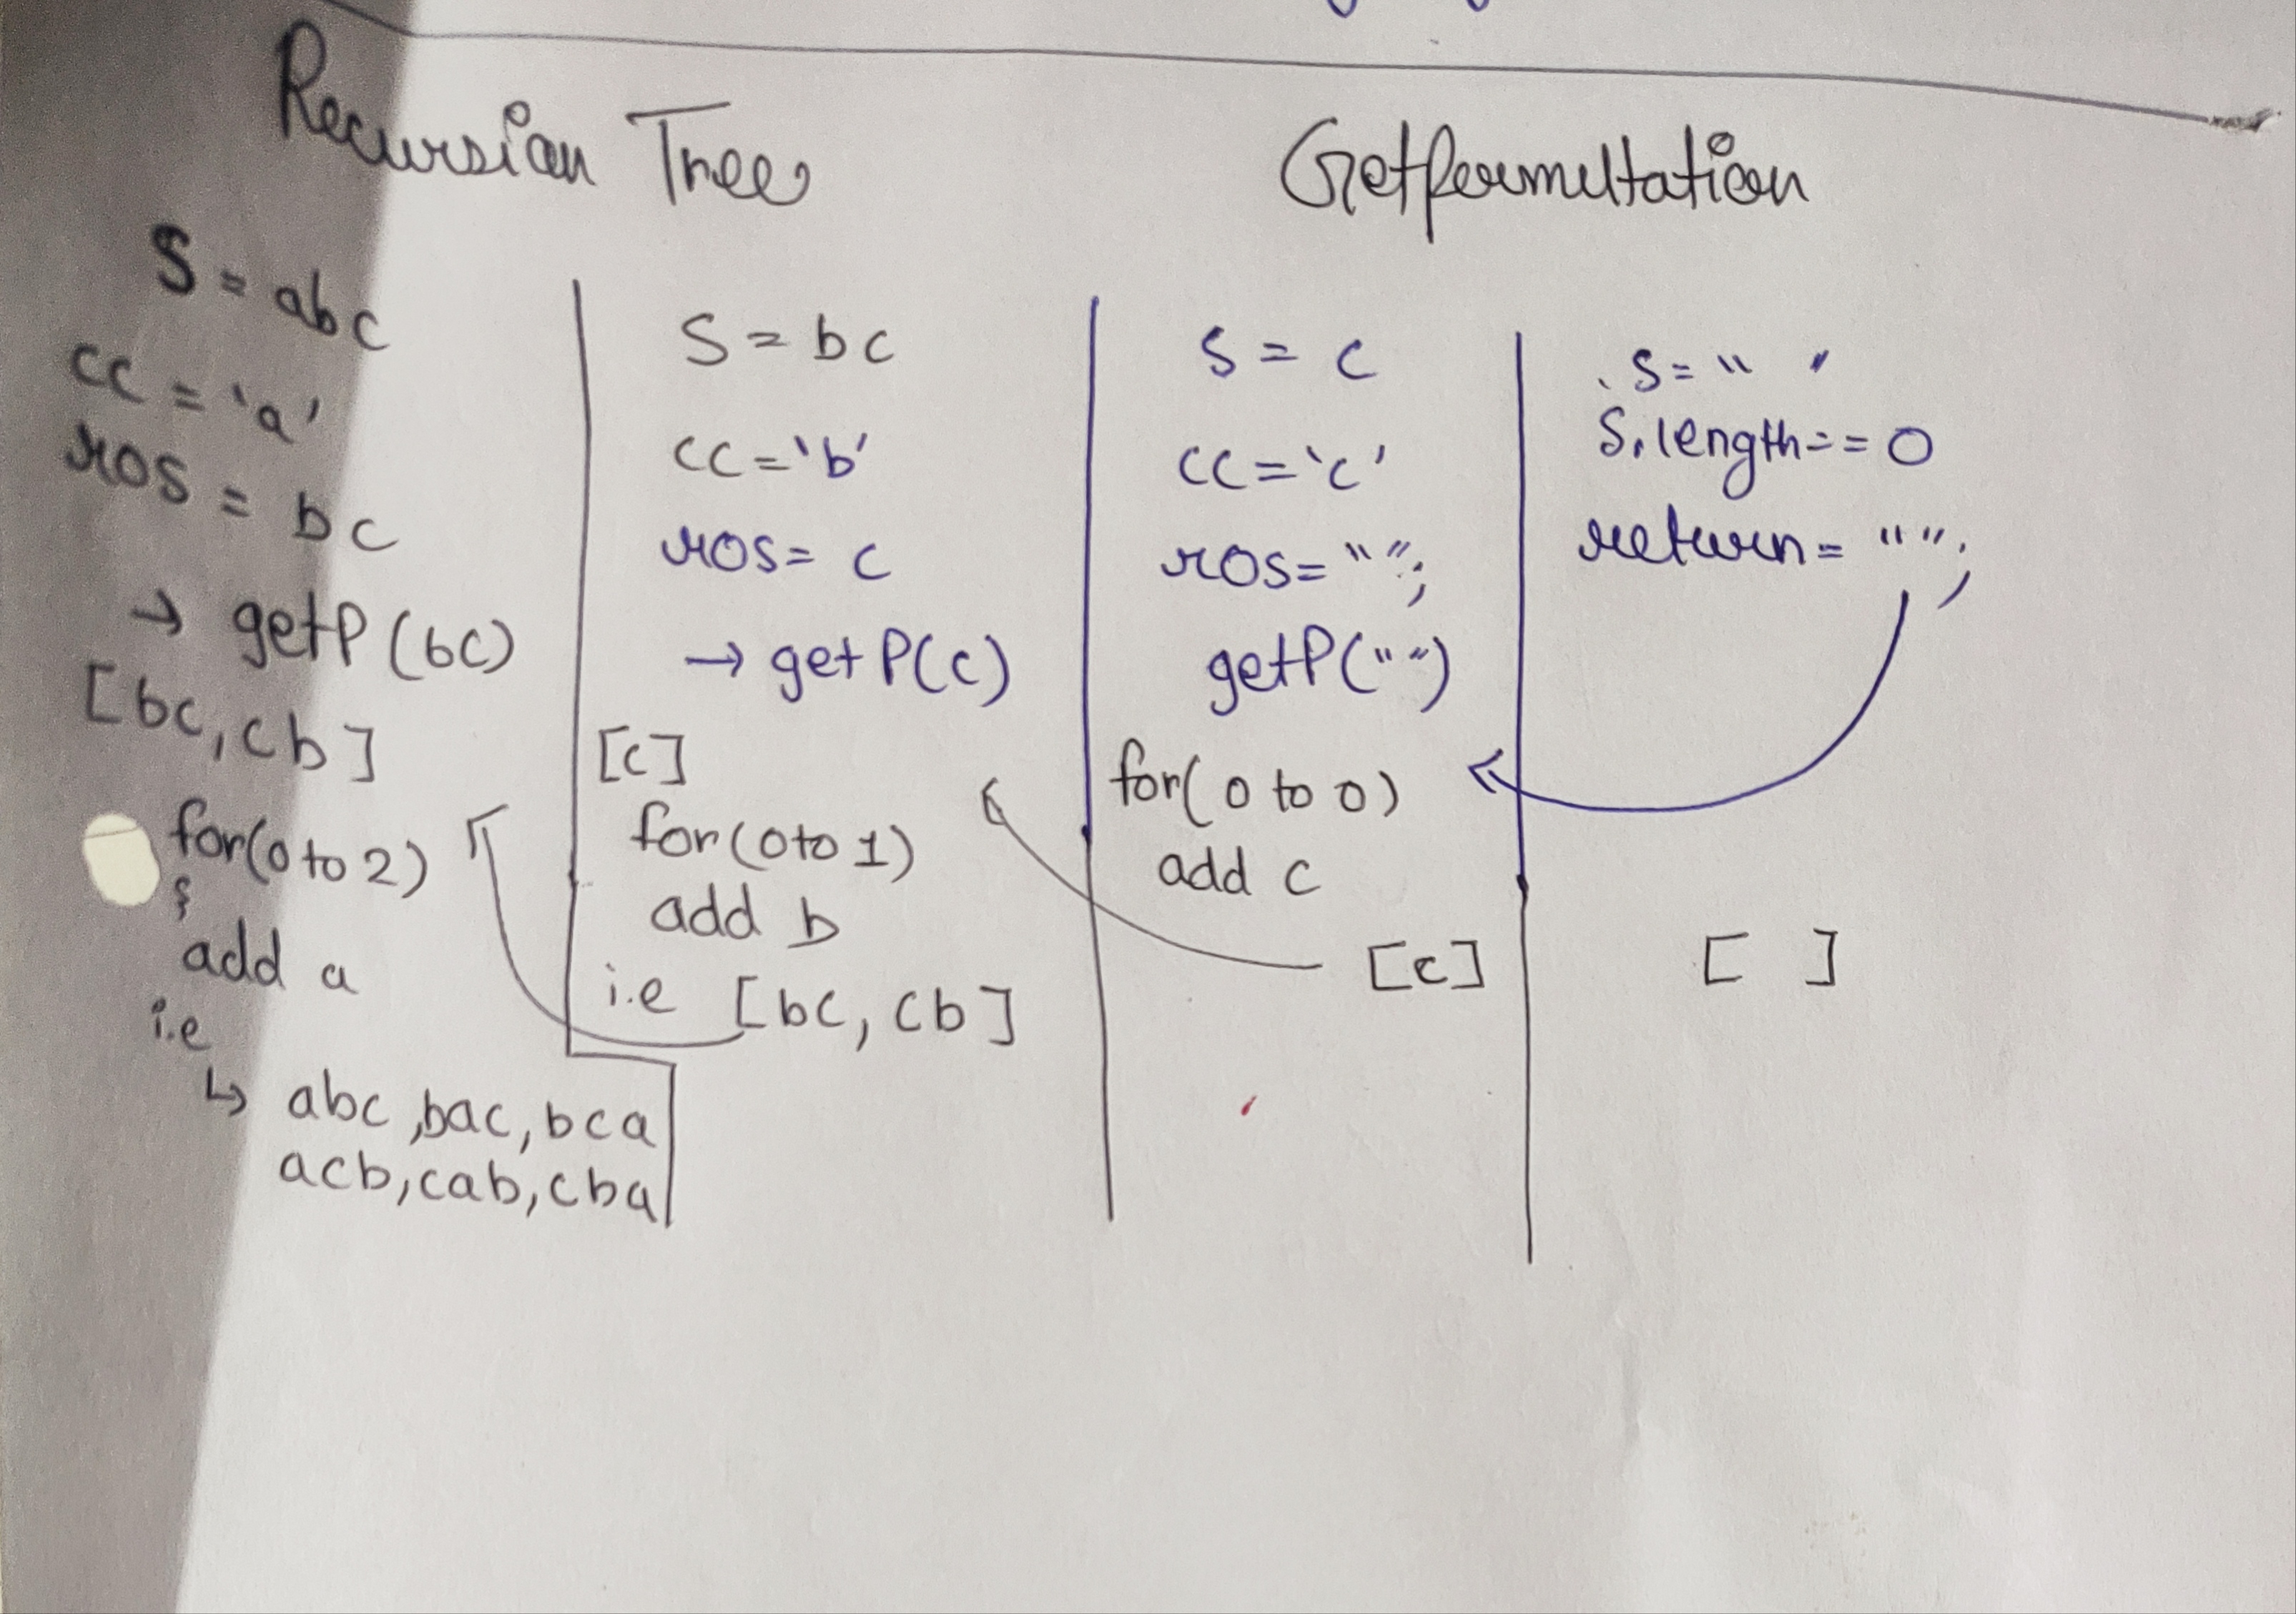 Recursian Tree
Getpermultation
S = abc
cc = 'a'
ros = bc
→ getP (bc)
[bc, cb]
for(0 to 2)
{
add a
i.e
↳ abc, bac, bca
acb, cab, cba
S = bc
cc = 'b'
ros = c
→ getP(c)
[c]
for(0 to 1)
add b
i.e [bc, cb]
S = c
cc = 'c'
ros = "";
getP("")
for(0 to 0)
add c
[c]
S = " "
S.length == 0
return = "";
[ ]